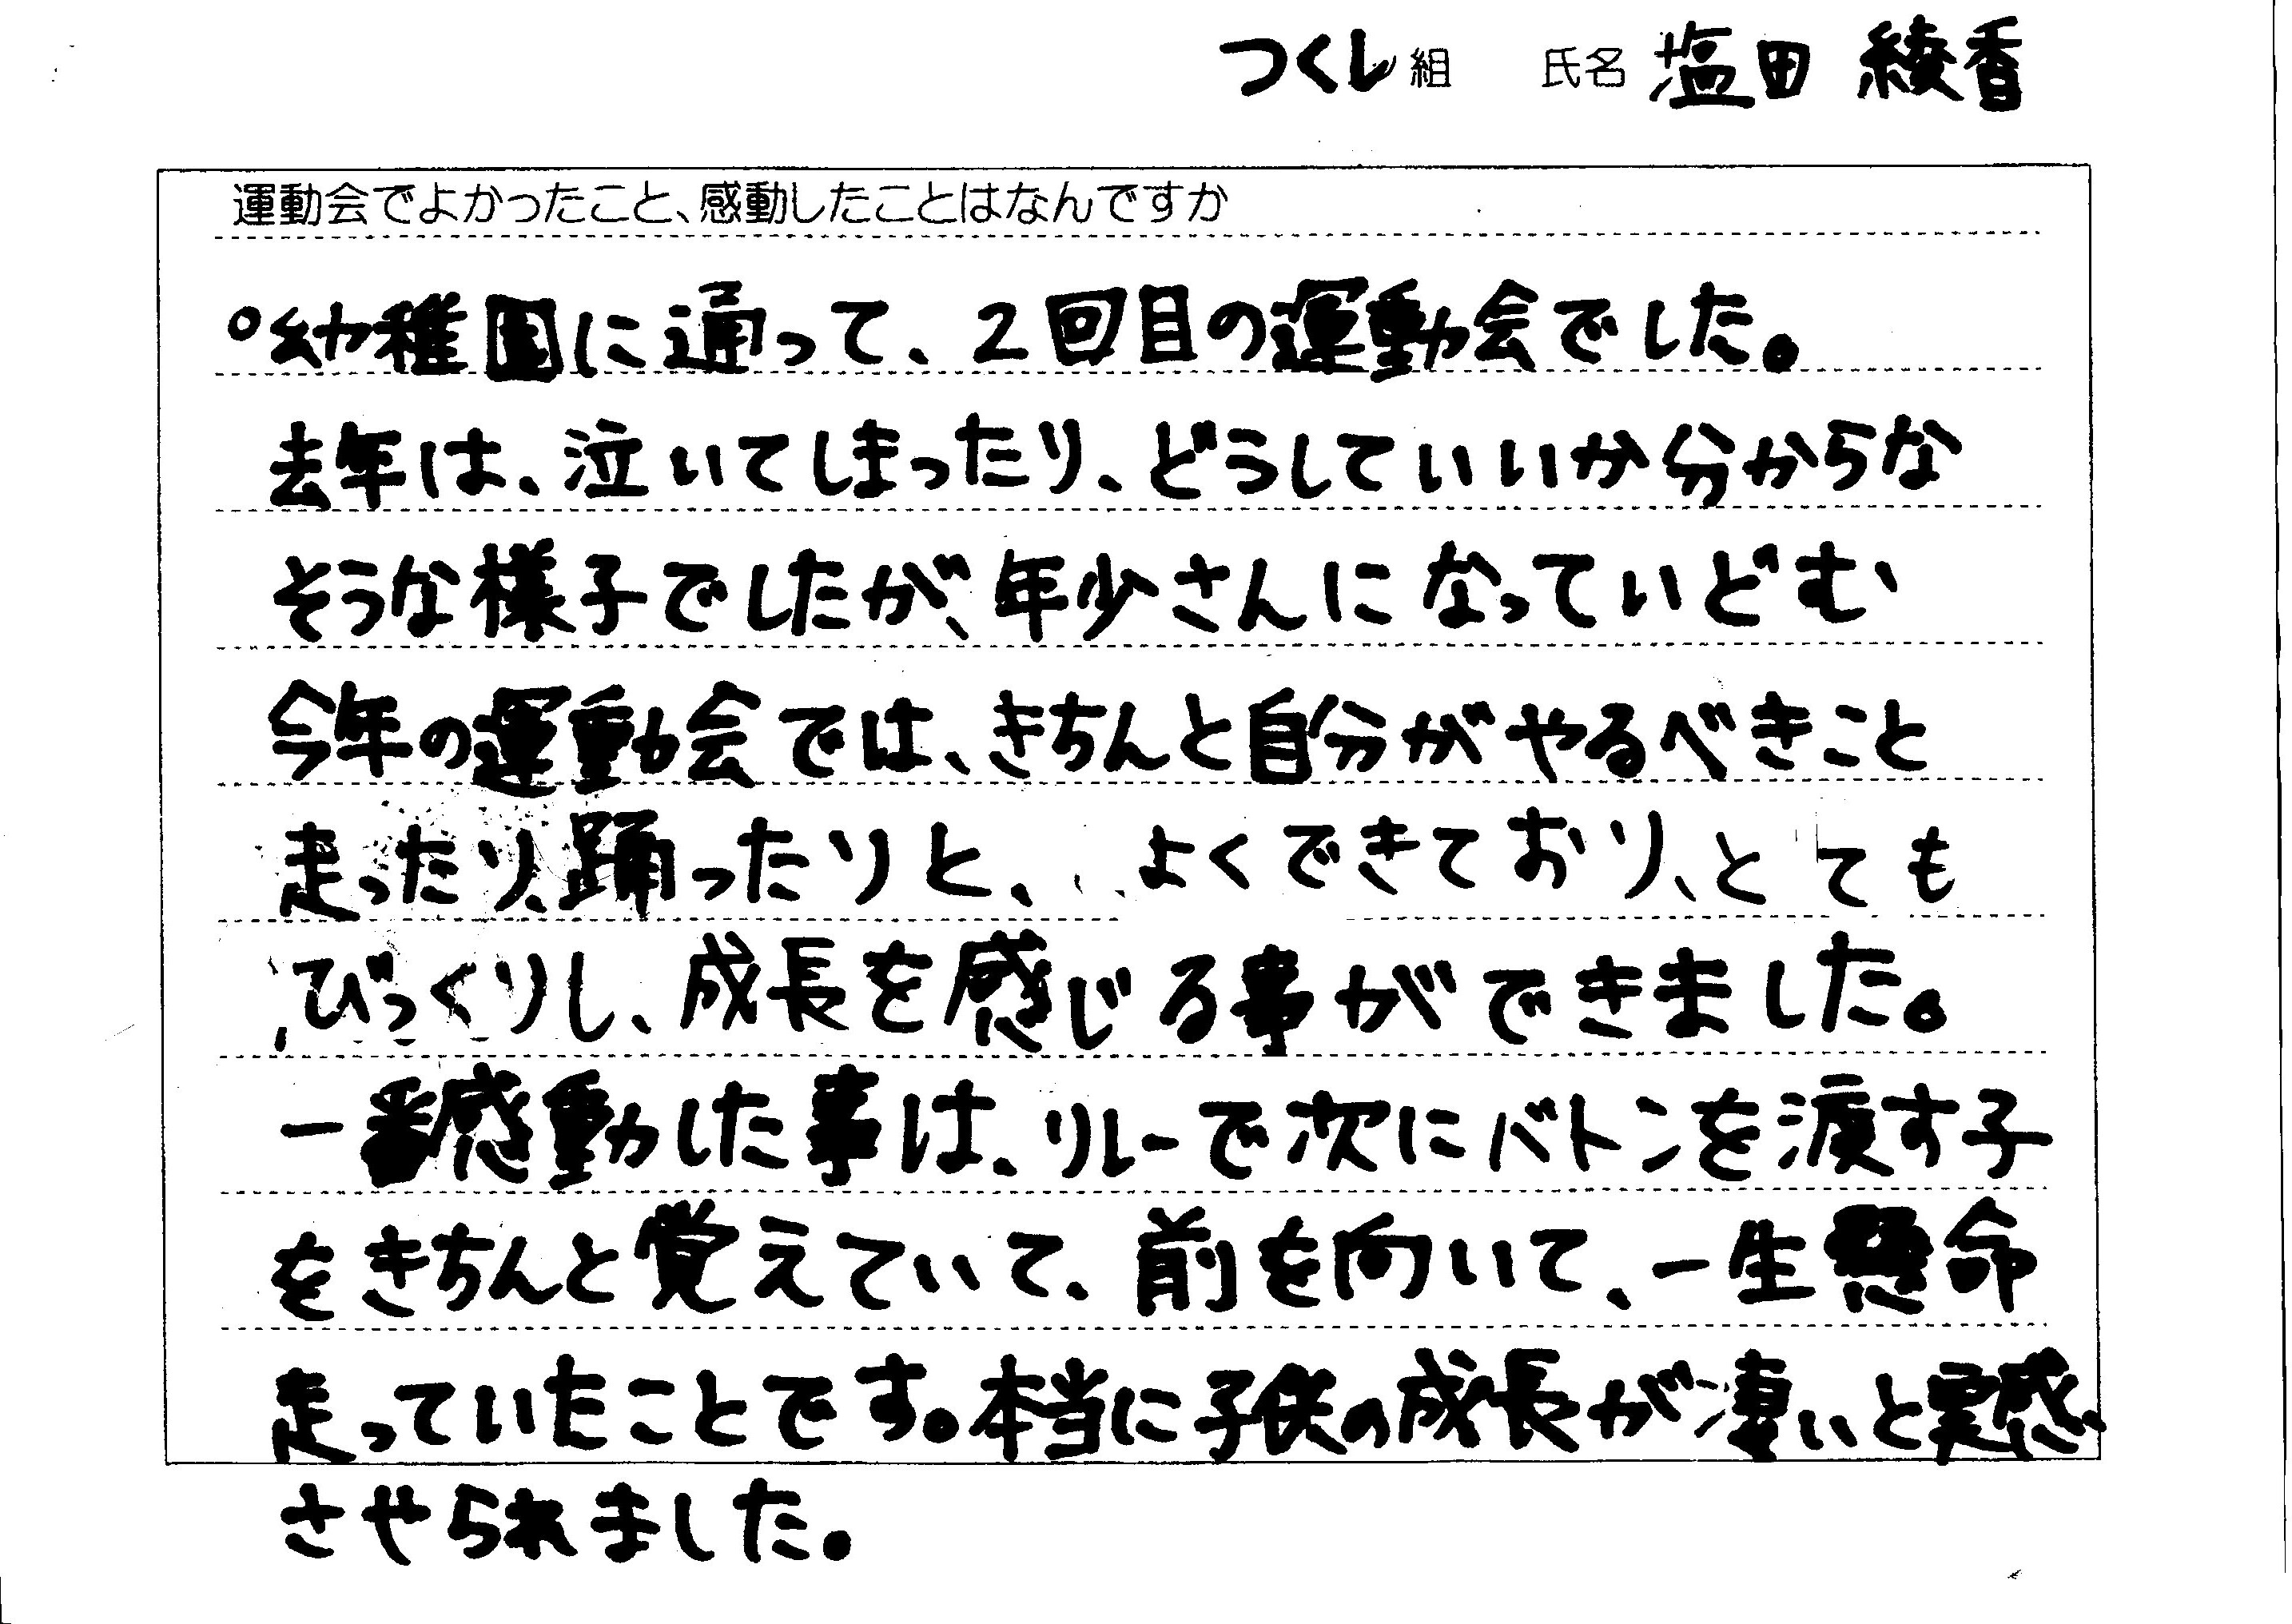 つくし組 氏名 塩田 綾香
運動会でよかったこと、感動したことはなんですか
○幼稚園に通って、2回目の運動会でした。
去年は、泣いてしまったり、どうしていいか分からな
そうな様子でしたが、年少さんになっていどむ
今年の運動会では、きちんと自分がやるべきこと
走ったり、踊ったりと、よくできており、とても
びっくりし、成長を感じる事ができました。
一番感動した事は、リレーで次にバトンを渡す子
をきちんと覚えていて、前を向いて、一生懸命
走っていたことです。本当に子供の成長が凄いと実感
させられました。